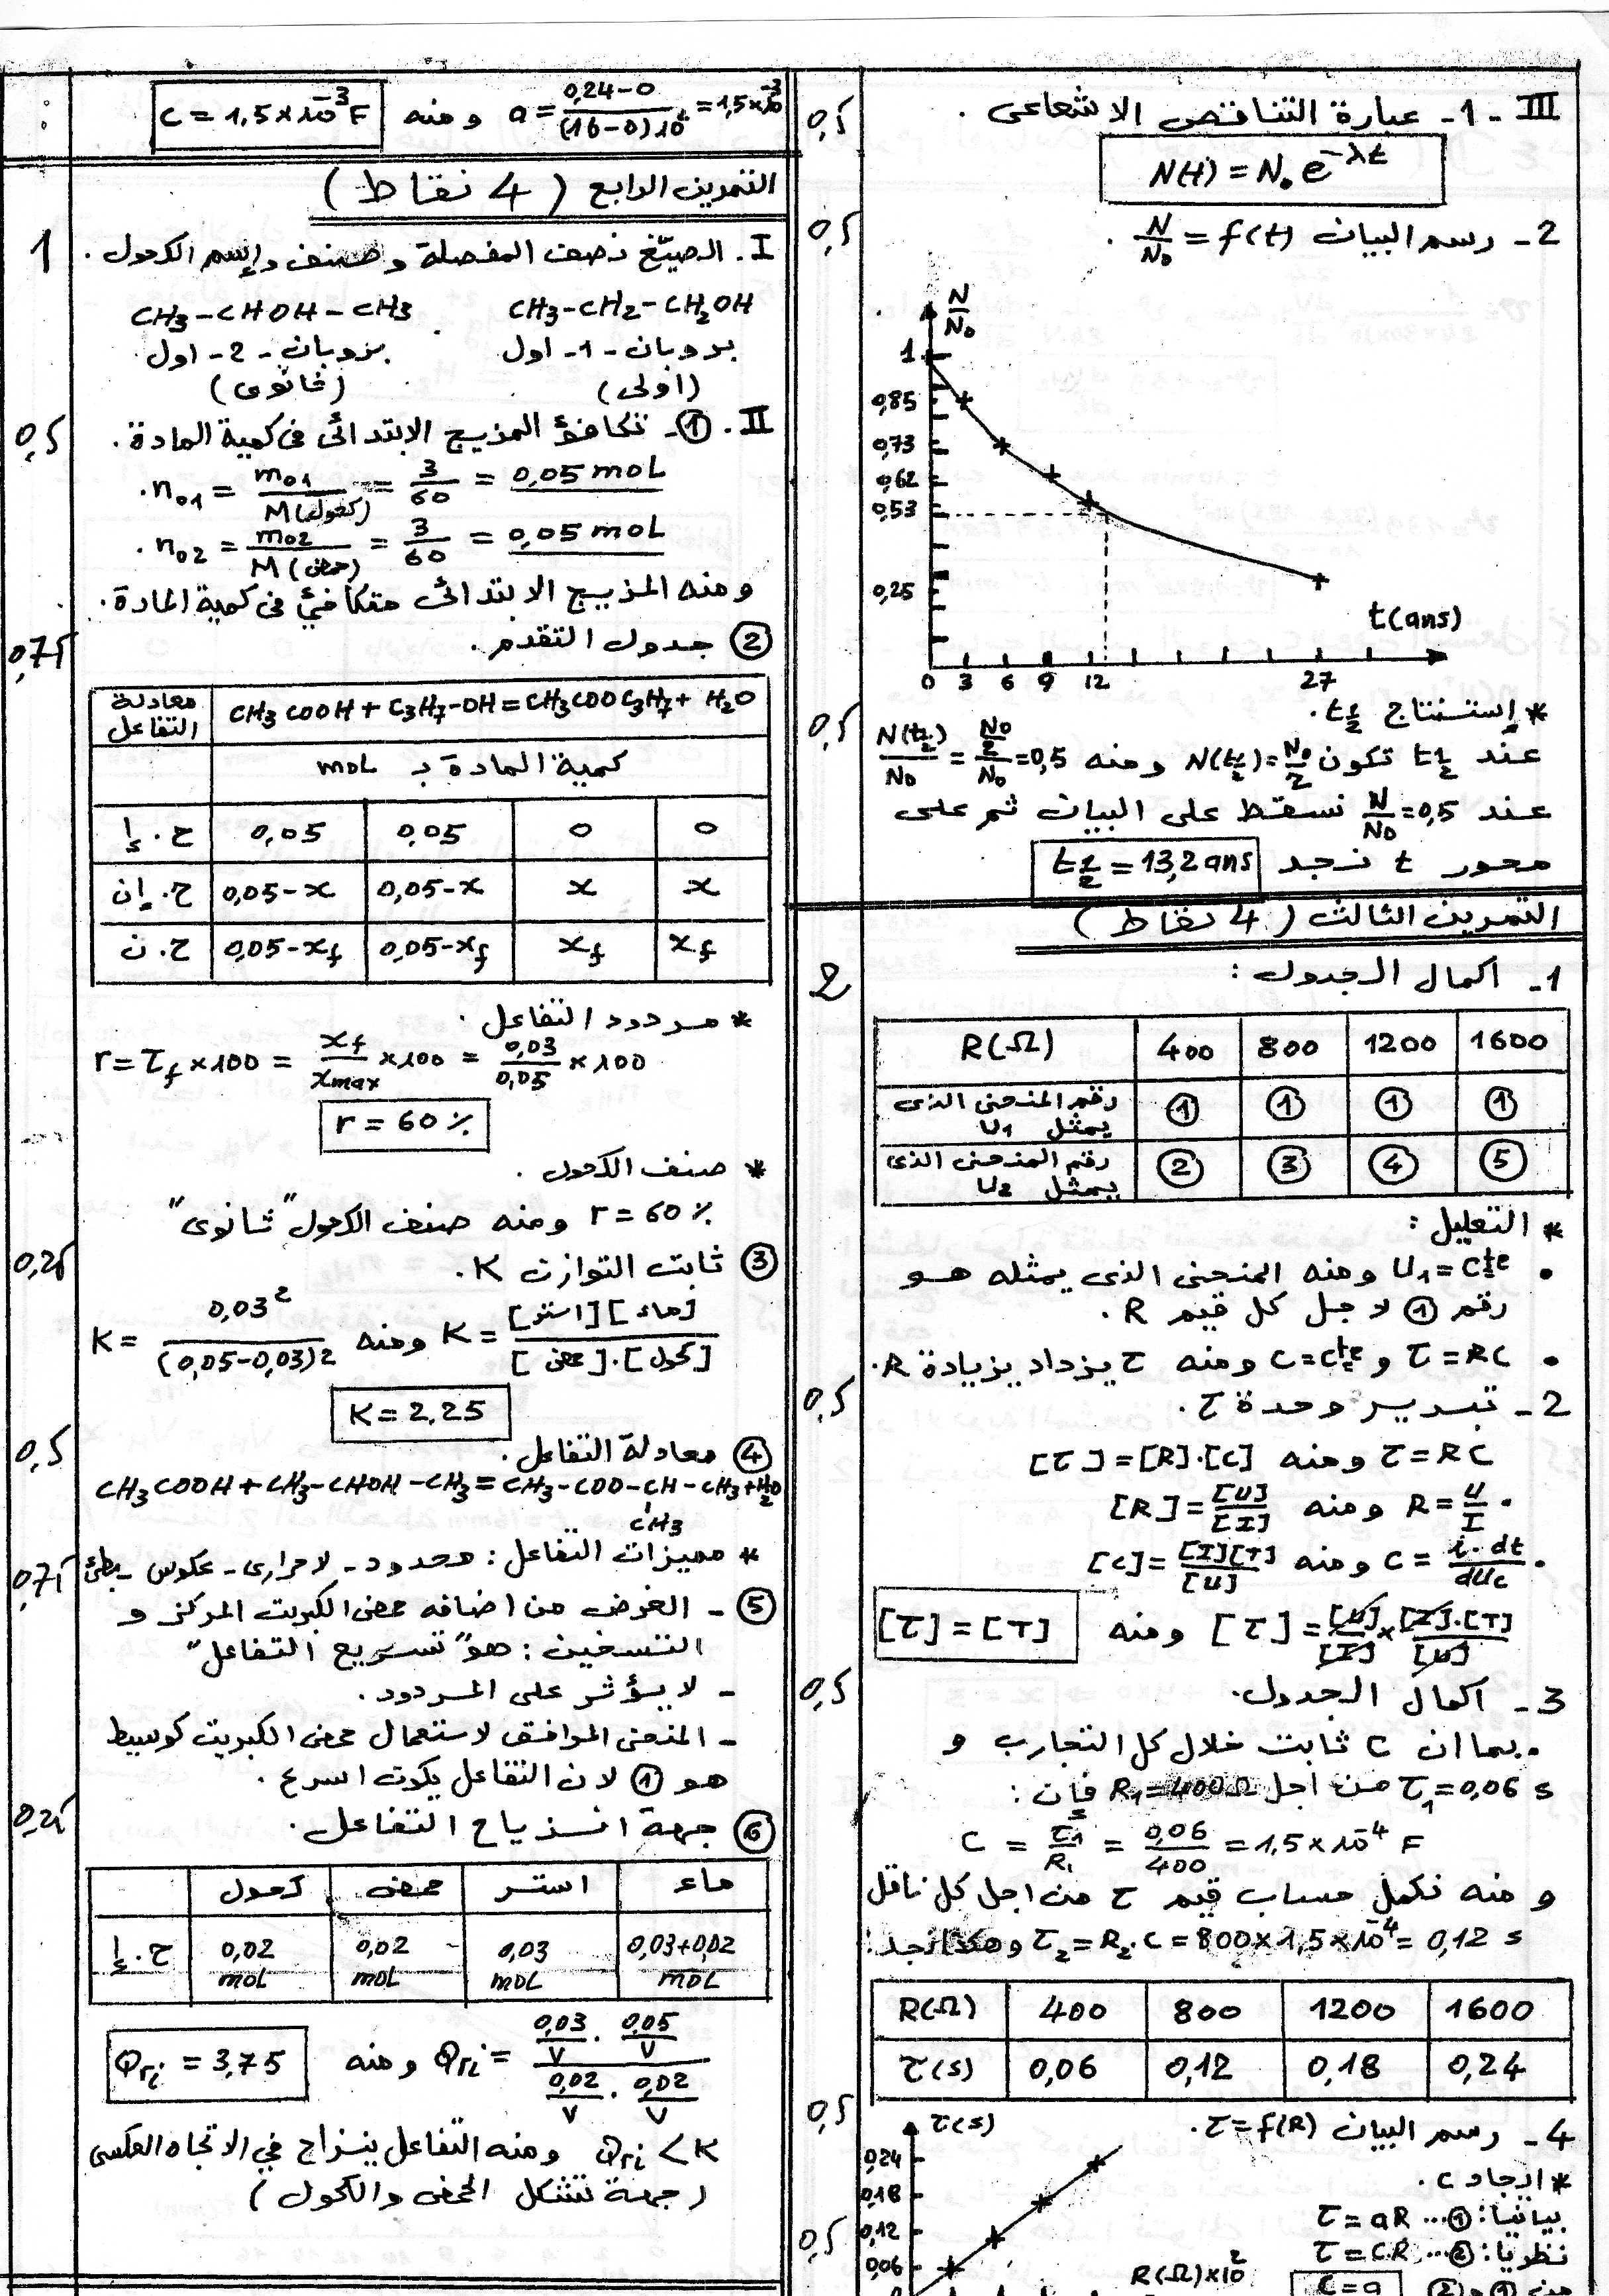 III - 1 - عبارة التناقص الاشعاعي .
N(t) = N₀ e^{-λt}
0,5
2 - رسم البيان N/N₀ = f(t) .
0,5
N/N₀
1
0,85
0,73
0,62
0,53
0,25
t(ans)
0 3 6 9 12 27
* إستنتاج t½ .
0,5
عند t½ تكون N(t½) = N₀/2 ومنه N(t½)/N₀ = (N₀/2)/N₀ = 0,5
عند N/N₀ = 0,5 نسقط على البيان ثم على
محور t نجد t½ = 13,2 ans
التمرين الثالث ( 4 نقاط )
1 - اكمال الجدول :
2
R(Ω) 400 800 1200 1600
رقم المنحنى الذي يمثل U₁ ① ① ① ①
رقم المنحنى الذي يمثل U₂ ② ③ ④ ⑤
* التعليل :
• U₁ = Cte ومنه المنحنى الذي يمثله هو
رقم ① لاجل كل قيم R .
• τ = RC و C = cte ومنه τ يزداد بزيادة R .
2 - تبرير وحدة τ .
0,5
τ = RC ومنه [τ] = [R].[C]
• R = U/I ومنه [R] = [U]/[I]
• C = i.dt/dUc ومنه [C] = [I][T]/[U]
[τ] = [U]/[I] × [I].[T]/[U] ومنه [τ] = [T]
3 - اكمال الجدول .
0,5
• بما ان C ثابت خلال كل التجارب و
τ₁ = 0,06 s من اجل R₁ = 400 Ω فإن :
C = τ₁/R₁ = 0,06/400 = 1,5×10⁻⁴ F
و منه نكمل حساب قيم τ من اجل كل ناقل
τ₂ = R₂.C = 800×1,5×10⁻⁴ = 0,12 s وهكذا نجد :
R(Ω) 400 800 1200 1600
τ(s) 0,06 0,12 0,18 0,24
4 - رسم البيان τ = f(R) .
0,5
* ايجاد C .
بيانيا : τ = aR ... ①
نظريا : τ = CR ... ②
من ① و ② C = a
0,5
τ(s)
0,24
0,18
0,12
0,06
0
R(Ω)×10²
a = (0,24-0)/((16-0)10²) = 1,5×10⁻³ ومنه C = 1,5×10⁻³ F
التمرين الرابع ( 4 نقاط )
I . الصيغ نصف المفصلة و صنف و إسم الكحول .
1
CH₃-CH₂-CH₂OH CH₃-CHOH-CH₃
بروبان - 1 - اول بروبان - 2 - اول
(اولي) (ثانوي)
II . ① - تكافؤ المزيج الابتدائي في كمية المادة .
0,5
• n₀₁ = m₀₁/M(كحول) = 3/60 = 0,05 moL
• n₀₂ = m₀₂/M(حمض) = 3/60 = 0,05 moL
ومنه المزيج الابتدائي متكافئ في كمية المادة .
② جدول التقدم .
0,75
معادلة التفاعل CH₃COOH + C₃H₇-OH = CH₃COOC₃H₇ + H₂O
كمية المادة بـ moL
ح . إ 0,05 0,05 0 0
ح . إن 0,05-x 0,05-x x x
ح . ن 0,05-x_f 0,05-x_f x_f x_f
* مردود التفاعل .
r = τ_f×100 = x_f/x_max ×100 = 0,03/0,05 ×100
r = 60 %
* صنف الكحول .
r = 60 % ومنه صنف الكحول "ثانوي"
③ ثابت التوازن K .
0,25
K = [استر][ماء]/[حمض].[كحول] ومنه K = 0,03²/(0,05-0,03)²
K = 2,25
④ معادلة التفاعل .
0,5
CH₃COOH + CH₃-CHOH-CH₃ = CH₃-COO-CH-CH₃ + H₂O
CH₃
* مميزات التفاعل : محدود - لاحراري - عكوس - بطئ
0,75
⑤ - الغرض من اضافة حمض الكبريت المركز و
التسخين : هو "تسريع التفاعل"
- لا يؤثر على المردود .
- المنحنى الموافق لاستعمال حمض الكبريت كوسيط
هو ① لان التفاعل يكون اسرع .
⑥ جهة انزياح التفاعل .
0,25
كحول حمض استر ماء
ح . إ 0,02 moL 0,02 moL 0,03 moL 0,03+0,02 moL
Qri = (0,03/V . 0,05/V)/(0,02/V . 0,02/V) ومنه Qri = 3,75
Qri < K ومنه التفاعل ينزاح في الاتجاه العكسي
( جهة تشكل الحمض والكحول )